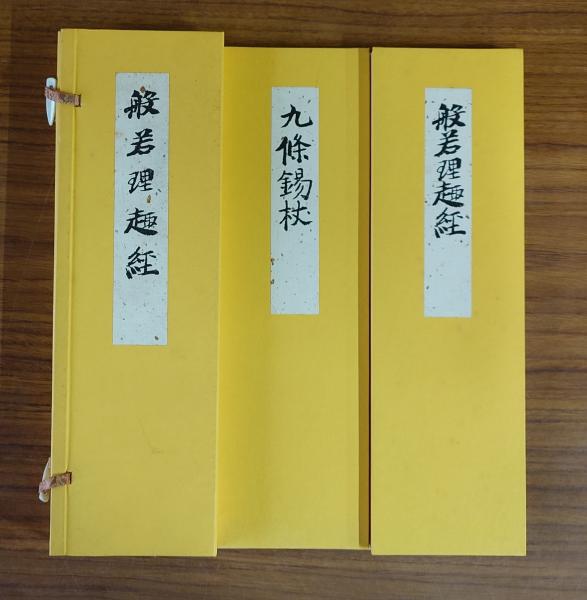 般若理趣經
九條錫杖
般若理趣經